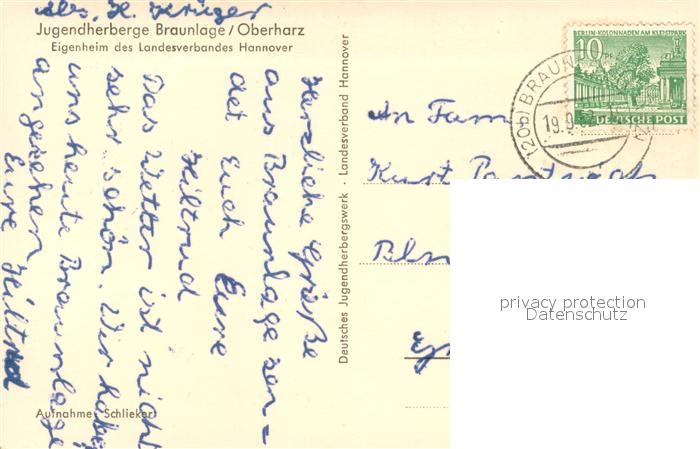 Abs. H. Krüger
Jugendherberge Braunlage/Oberharz
Eigenheim des Landesverbandes Hannover
Herzliche Grüße
aus Braunlage sen=
det Euch Eure
Hiltrud
Das Wetter ist nicht
sehr schön. Wir haben
uns heute Braunlage
angesehen
Eure Hiltrud
Aufnahme: Schliekert
Deutsches Jugendherbergswerk · Landesverband Hannover
BERLIN-KOLONNADEN AM KLEISTPARK
10 Pf
DEUTSCHE POST
(20b) BRAUN
19.9.52
An Fam
Kurt
Bln
privacy protection
Datenschutz